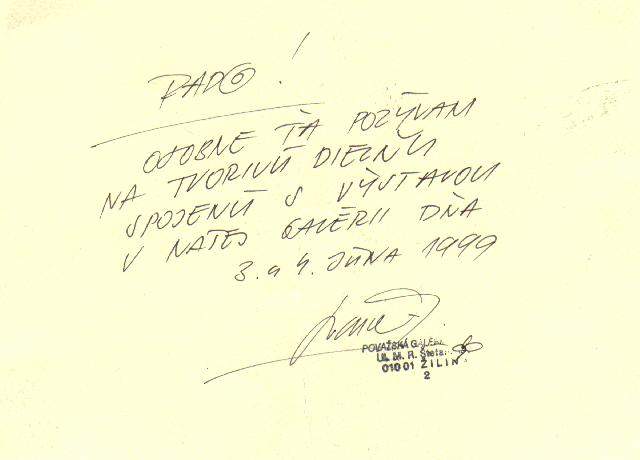 RADO !
OSOBNE ŤA POZÝVAM
NA TVORIVÚ DIELŇU
SPOJENÚ S VÝSTAVOU
V NAŠEJ GALÉRII DŇA
3. a 4. JÚNA 1999
POVAŽSKÁ GALÉRI
Ul. M. R. Štefa
010 01 ŽILIN
2